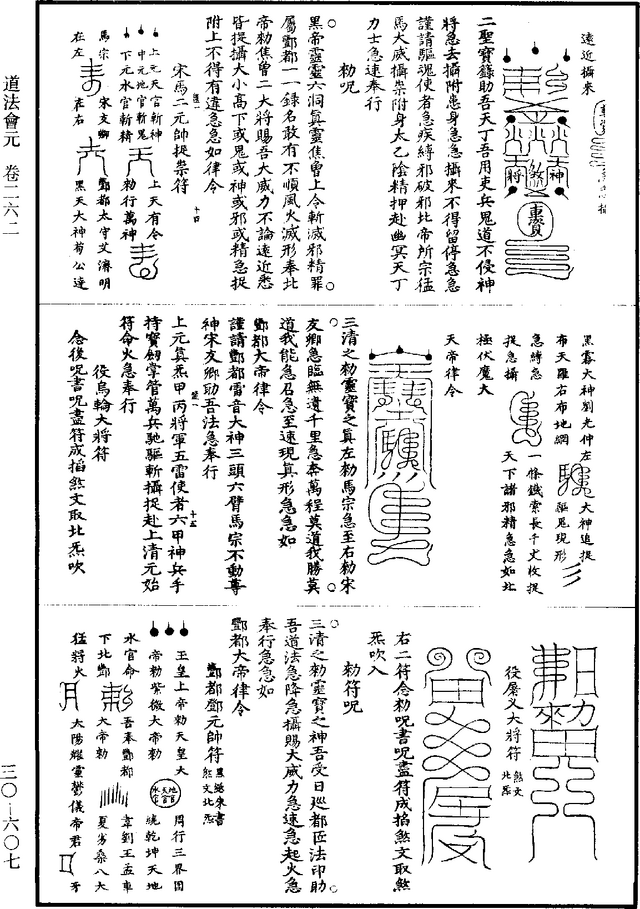 道法會元 卷二六二
三〇—六〇七
遠近攝來
二聖寶籙助吾天丁吾用吏兵鬼道不侵神
將急去攝附患身急急攝來不得留停急急
謹請驅魂使者急疾縛邪破邪北帝所宗猛
馬大威攝祟附身太乙陰精押赴幽冥天丁
力士急速奉行
勑呪
黑帝靈靈六洞真靈焦曾上令斬滅邪精罪
屬酆都一一錄名敢有不順風火滅形奉北
帝勑焦曾二大將賜吾大威力不論遠近悉
皆提攝大小高下或鬼或神或邪或精急捉
附上不得有違急急如律令
宋馬二元帥捉祟符
上元天官斬神
中元地官斬鬼
下元水官斬精
上天有令
勑行萬神
馬宗
宋友卿
酆都太守艾濟明
在左
在右
黑天大神苟公達
黑霧大神劉光仲左
大神追捉
布天羅右布地網
驅鬼現形
急縛急
一條鐵索長千丈收捉
捉急攝
天下諸邪精急急如北
極伏魔大
天帝律令
三清之勑靈寶之真左勑馬宗急至右勑宋
友卿急臨無違千里急奔萬程莫道我勝莫
道我能急召急至速現真形急急如
酆都大帝律令
謹請酆都雷音大神三頭六臂馬宗不動尊
神宋友卿助吾法急奉行
上元真炁甲丙將軍五雷使者六甲神兵手
持寶劒掌管萬兵馳驅斬攝捉赴上清元始
符命火急奉行
役烏輪大將符
念後呪書呪盡符成掐煞文取北炁吹
役廉义大將符
煞文
北炁
右二符念勑呪書呪盡符成掐煞文取煞
炁吹入
勑符呪
三清之勑靈寶之神吾受日巡都匝法印助
吾道法急降急攝賜大威力急速急起火急
奉行急急如
酆都大帝律令
酆都鄧元帥符
黑𥿄朱書
煞文北炁
玉皇上帝勑天皇大
周行三界囙
帝勑紫微大帝勑
天官
地官
水官
統乾坤天地
水官命
吾奉酆都
韋劉王孟車
下北酆
大帝勑
夏㓜桑八大
猛將火
太陽耀靈鬱儀帝君